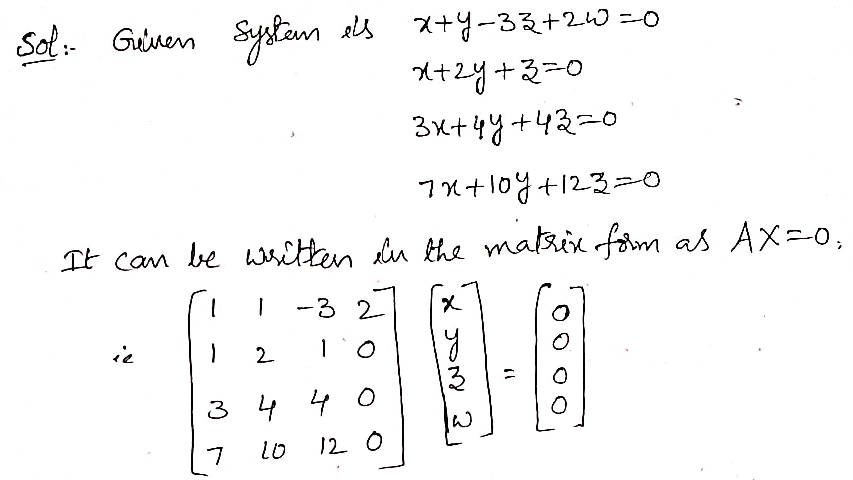 Sol:- Given System is x+y-3z+2w=0
x+2y+z=0
3x+4y+4z=0
7x+10y+12z=0
It can be written in the matrix form as AX=0.
ie [1 1 -3 2] [x] [0]
[1 2 1 0] [y] = [0]
[3 4 4 0] [z] [0]
[7 10 12 0] [w] [0]